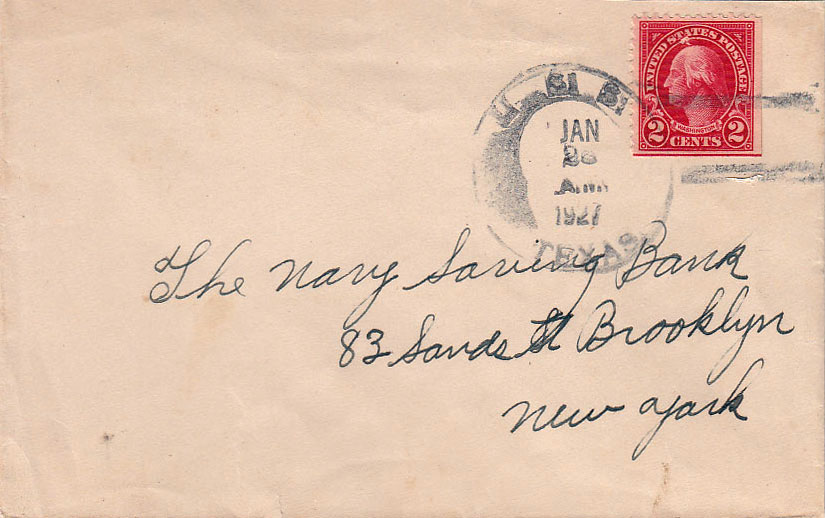 UNITED STATES POSTAGE
WASHINGTON
2 CENTS 2
U. S. S.
JAN
A.M.
1927
TEXAS
The Navy Saving Bank
83 Sands St Brooklyn
New York